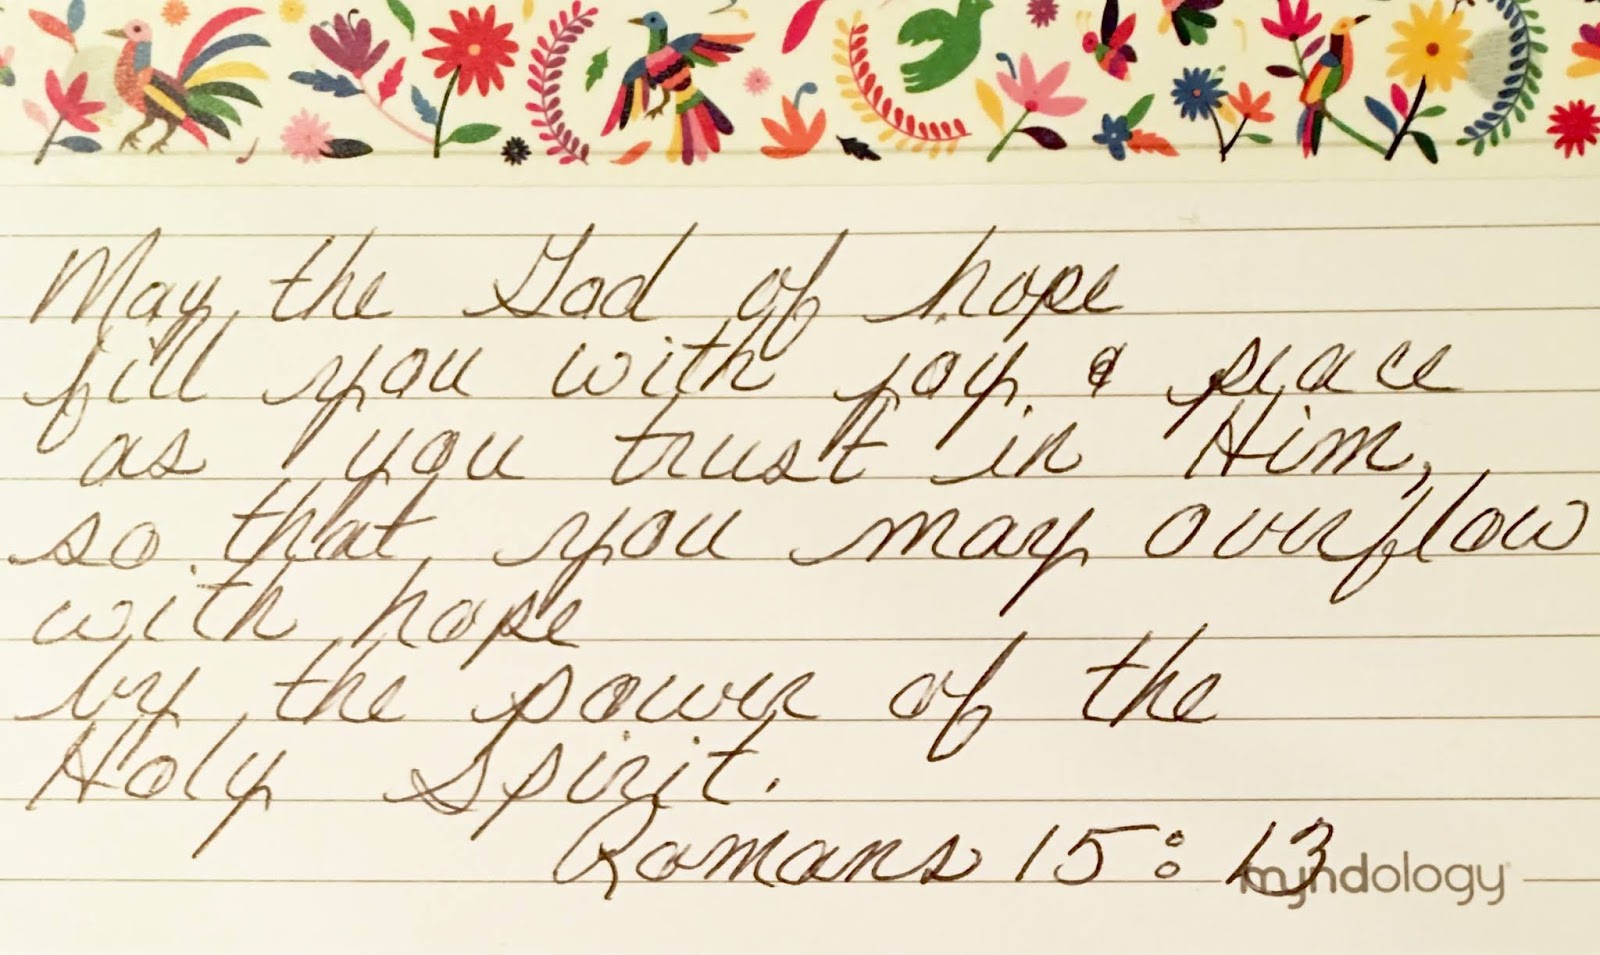 May the God of hope
fill you with joy & peace
as you trust in Him,
so that you may overflow
with hope
by the power of the
Holy Spirit.
Romans 15:13
myndology